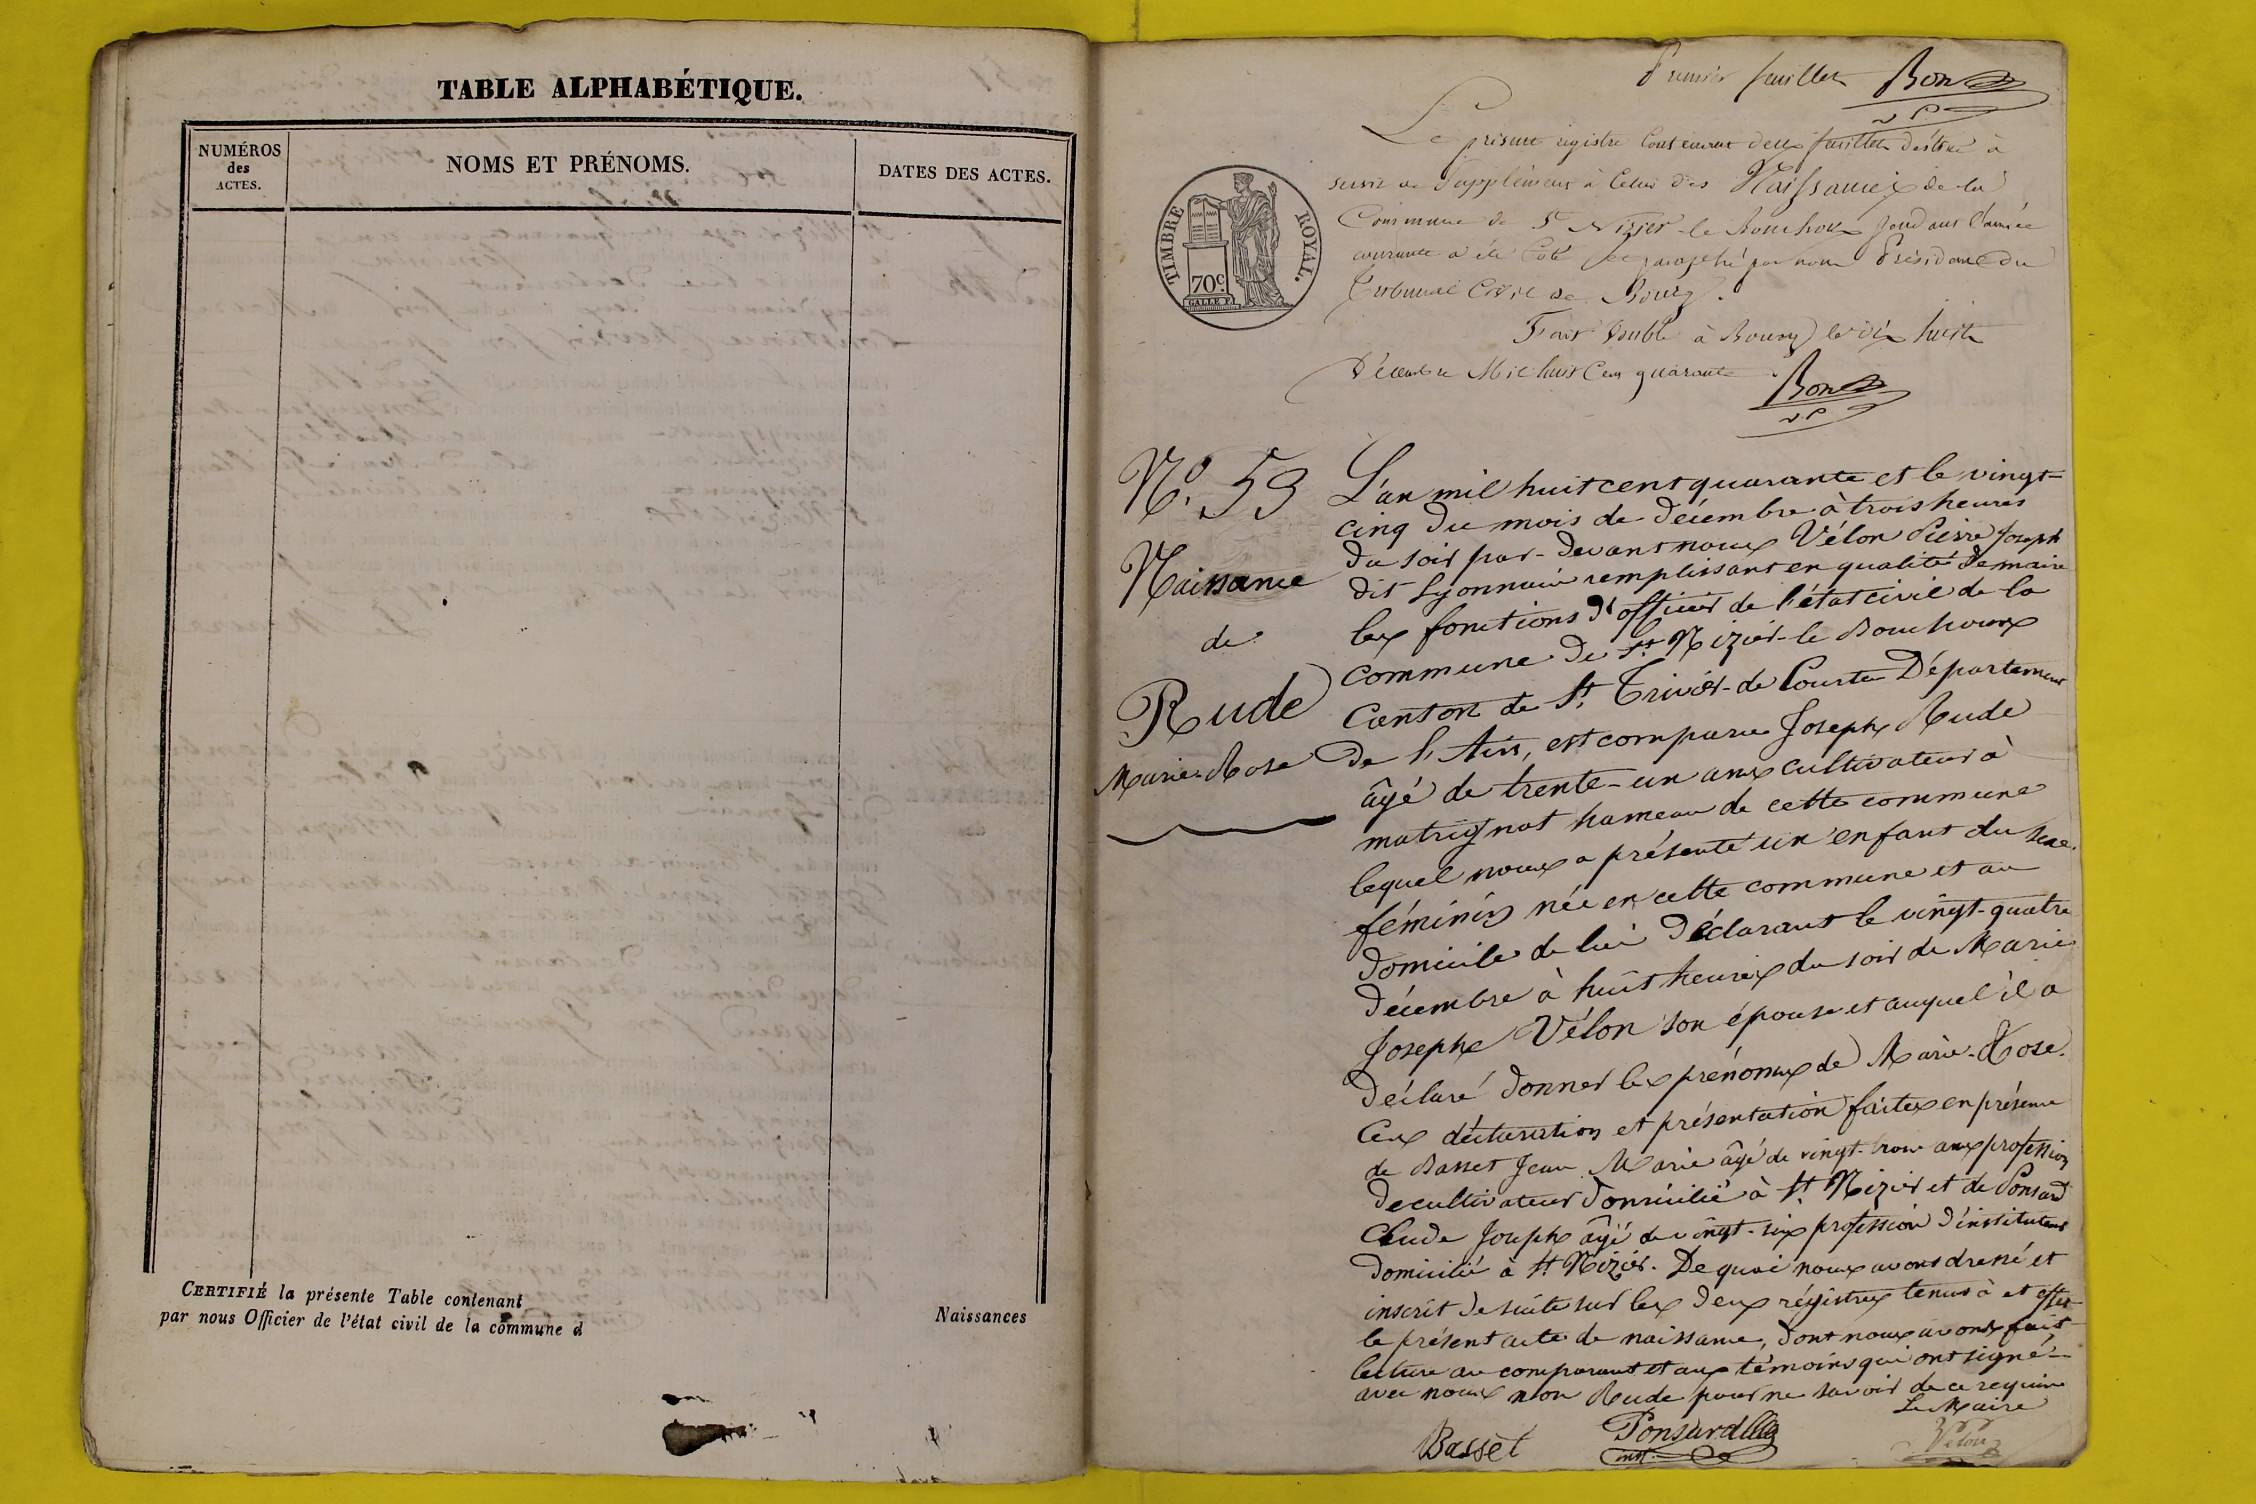 TABLE ALPHABÉTIQUE.
NUMÉROS
des
ACTES.
NOMS ET PRÉNOMS.
DATES DES ACTES.
CERTIFIÉ la présente Table contenant
Naissances
par nous Officier de l'état civil de la commune d
Premier feuillet Bon
Le présent registre contenant deux feuillets destiné à
servir de Supplément à Celui des Naissances de la
Commune de St Nizier le Bouchoux pendant l'année
courante a été Coté et paraphé par nous Président du
Tribunal Civil de Bourg.
Fait double à Bourg le dix huit
Décembre Mil huit Cent quarante
Bon
TIMBRE ROYAL.
70c.
N.o 53
Naissance
de
Rude
Marie-Rose
L'an mil huit cent quarante et le vingt-
cinq du mois de Décembre à trois heures
du soir par-devant nous Vélon Pierre Joseph
dit Lyonnais remplissant en qualité de maire
les fonctions d'officier de l'état civil de la
commune de St Nizier-le Bouchoux
Canton de St Trivier-de Courtes Département
de l'Ain, est comparu Joseph Rude
âgé de trente-un ans cultivateur à
matrignat hameau de cette commune
lequel nous a présenté un enfant du sexe
féminin née en cette commune et au
domicile de lui déclarant le vingt-quatre
décembre à huit heures du soir de Marie
Josephe Vélon son épouse et auquel il a
déclaré donner les prénoms de Marie-Rose.
Ces déclaration et présentation faites en présence
de Basset Jean Marie âgé de vingt-trois ans profession
de cultivateur domicilié à St Nizier et de Ponsard
Claude Joseph âgé de vingt-six profession d'instituteur
domicilié à St Nizier. De quoi nous avons dressé et
inscrit de suite sur les deux régistres tenus à et effet
le présent acte de naissance, dont nous avons fait
lecture au comparant et aux témoins qui ont signé
avec nous non Rude pour ne savoir de ce requis
Le Maire
Basset Ponsard Vélon
inst.